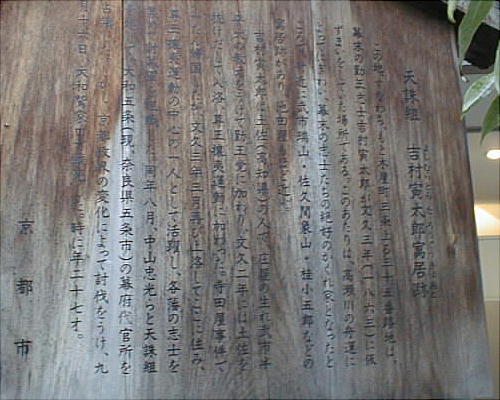 天誅組 吉村寅太郎寓居跡
この地、すなわちもと木屋町三条上る三十五番路地は、
幕末の勤王志士吉村寅太郎が文久三年(一八六三)に仮
ずまいをしていた場所である。このあたりは、高瀬川の舟運に
よってにぎわい、幕末の志士たちの絶好のかくれ家となったと
ころで、付近に武市瑞山・佐久間象山・桂小五郎などの
寓居跡があり、池田屋もほど近い。
吉村寅太郎は土佐(高知県)の人で、庄屋の生れ、武市半
平太の教えをうけて勤王党に加わり、文久二年には土佐を
抜けだして入洛、尊王攘夷運動に加わった。寺田屋事件で
帰国したが、文久三年三月再び上洛してここに住み、
尊王攘夷運動の中心の一人として活躍し、各藩の志士を
同年八月、中山忠光らと天誅組
大和五条(現、奈良県五条市)の幕府代官所を
京都政界の変化によって討伐をうけ、九
大和鷲家口 時に年二十七才。
京都市